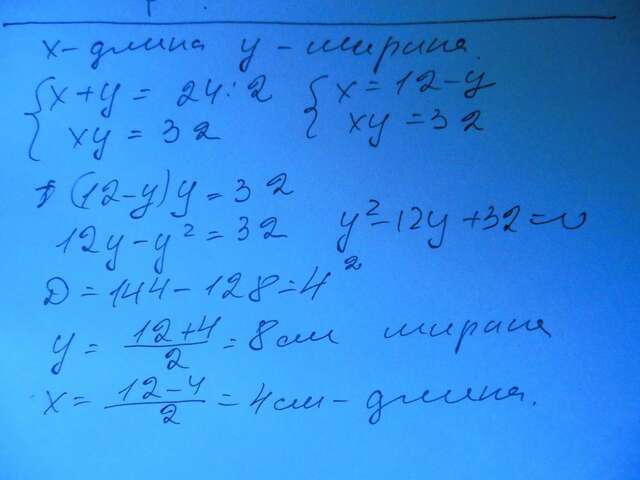 x-длина y-ширина.
{x+y = 24:2 {x=12-y
{xy = 32 {xy=32
(12-y)y=32
12y-y²=32 y²-12y+32=0
D=144-128=4²
y = (12+4)/2 = 8см ширина
x = (12-4)/2 = 4см - длина.